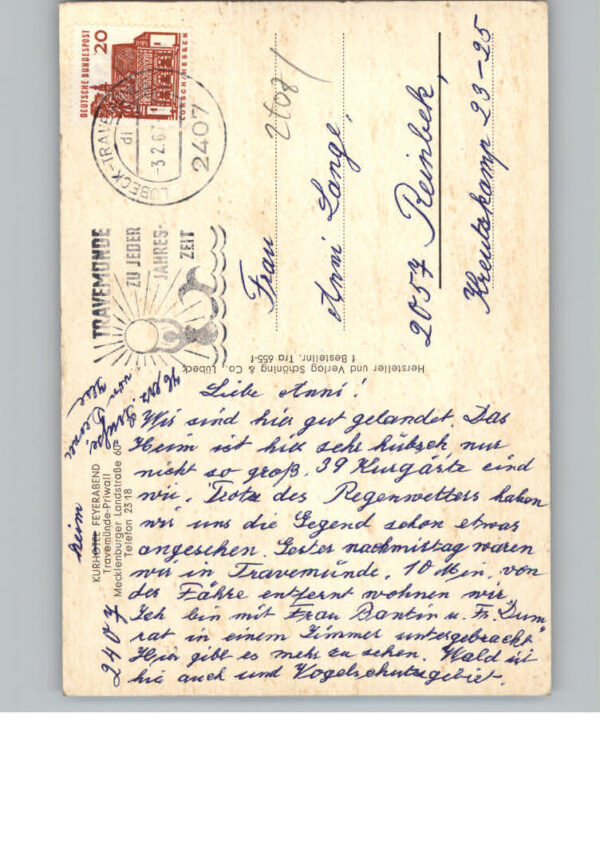 DEUTSCHE BUNDESPOST
20
LORSCH/HESSEN
LÜBECK-TRAVE
di
-3.2.67
2407
TRAVEMÜNDE
ZU JEDER
JAHRES-
ZEIT
2108/
Frau
Anni Lange,
2057 Reinbek,
Kreutzkamp 23-25
Hersteller und Verlag Schöning & Co., Lübeck
f Bestellnr. Tra 655-f
KURHOTEL FEYERABEND
Travemünde-Priwall
Mecklenburger Landstraße 60
Telefon 23 18
heim
2407
Liebe Anni!
Wir sind hier gut gelandet. Das
Heim ist hier sehr hübsch nur
nicht so groß. 39 Kurgäste sind
wir. Trotz des Regenwetters haben
wir uns die Gegend schon etwas
angesehen. Gestern nachmittag waren
wir in Travemünde. 10 Min. von
der Fähre entfernt wohnen wir.
Ich bin mit Frau Bantin u. Fr. Dum
rat in einem Zimmer untergebracht
Hier gibt es mehr zu sehen. Wald ist
hier auch und Vogelschutzgebiet.
Herz. Grüße
von Deiner